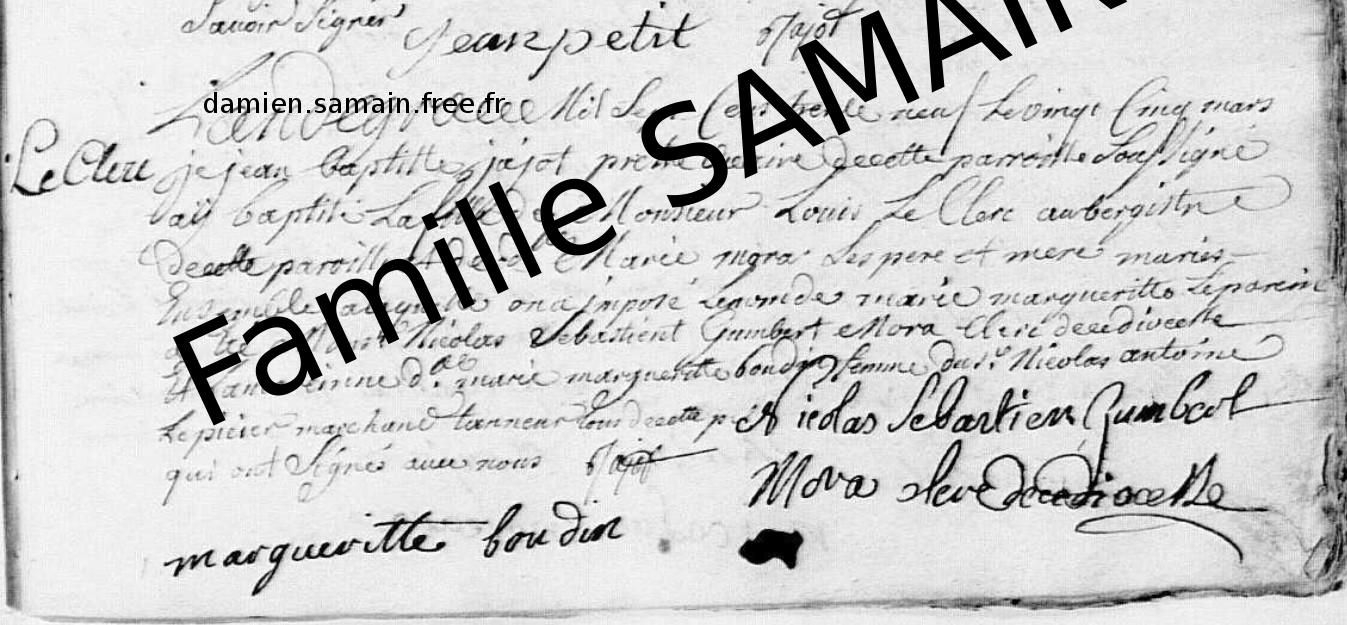 Savoir Signer jean petit Jajot
damien.samain.free.fr
Famille SAMAIN
L'an de grace Mil Sept Cens trente neuf Le vingt Cinq mars
Le Clerc
je jean baptitte jajot pretre decette parroitte Soussigné
aÿ baptisé La fille de Monsieur Louis Le Clerc aubergistre
decette paroisse et de d.lle Marie mgra Les pere et mere mariés
Ensemble a laquelle on a imposé Le nom de marie marguerittes Le parein
a été Nicolas Sebastient Gumbert Mora Clerc de ce diocesse
Et La mareinne d.lle marie margueritte boudin femme du s.r Nicolas antoine
Lepicier marchand tanneur tous decette
qui ont Signés avec nous Jajot
Nicolas Sebastien Gumbert
Mora clerc de ce diocesse
margueritte boudin